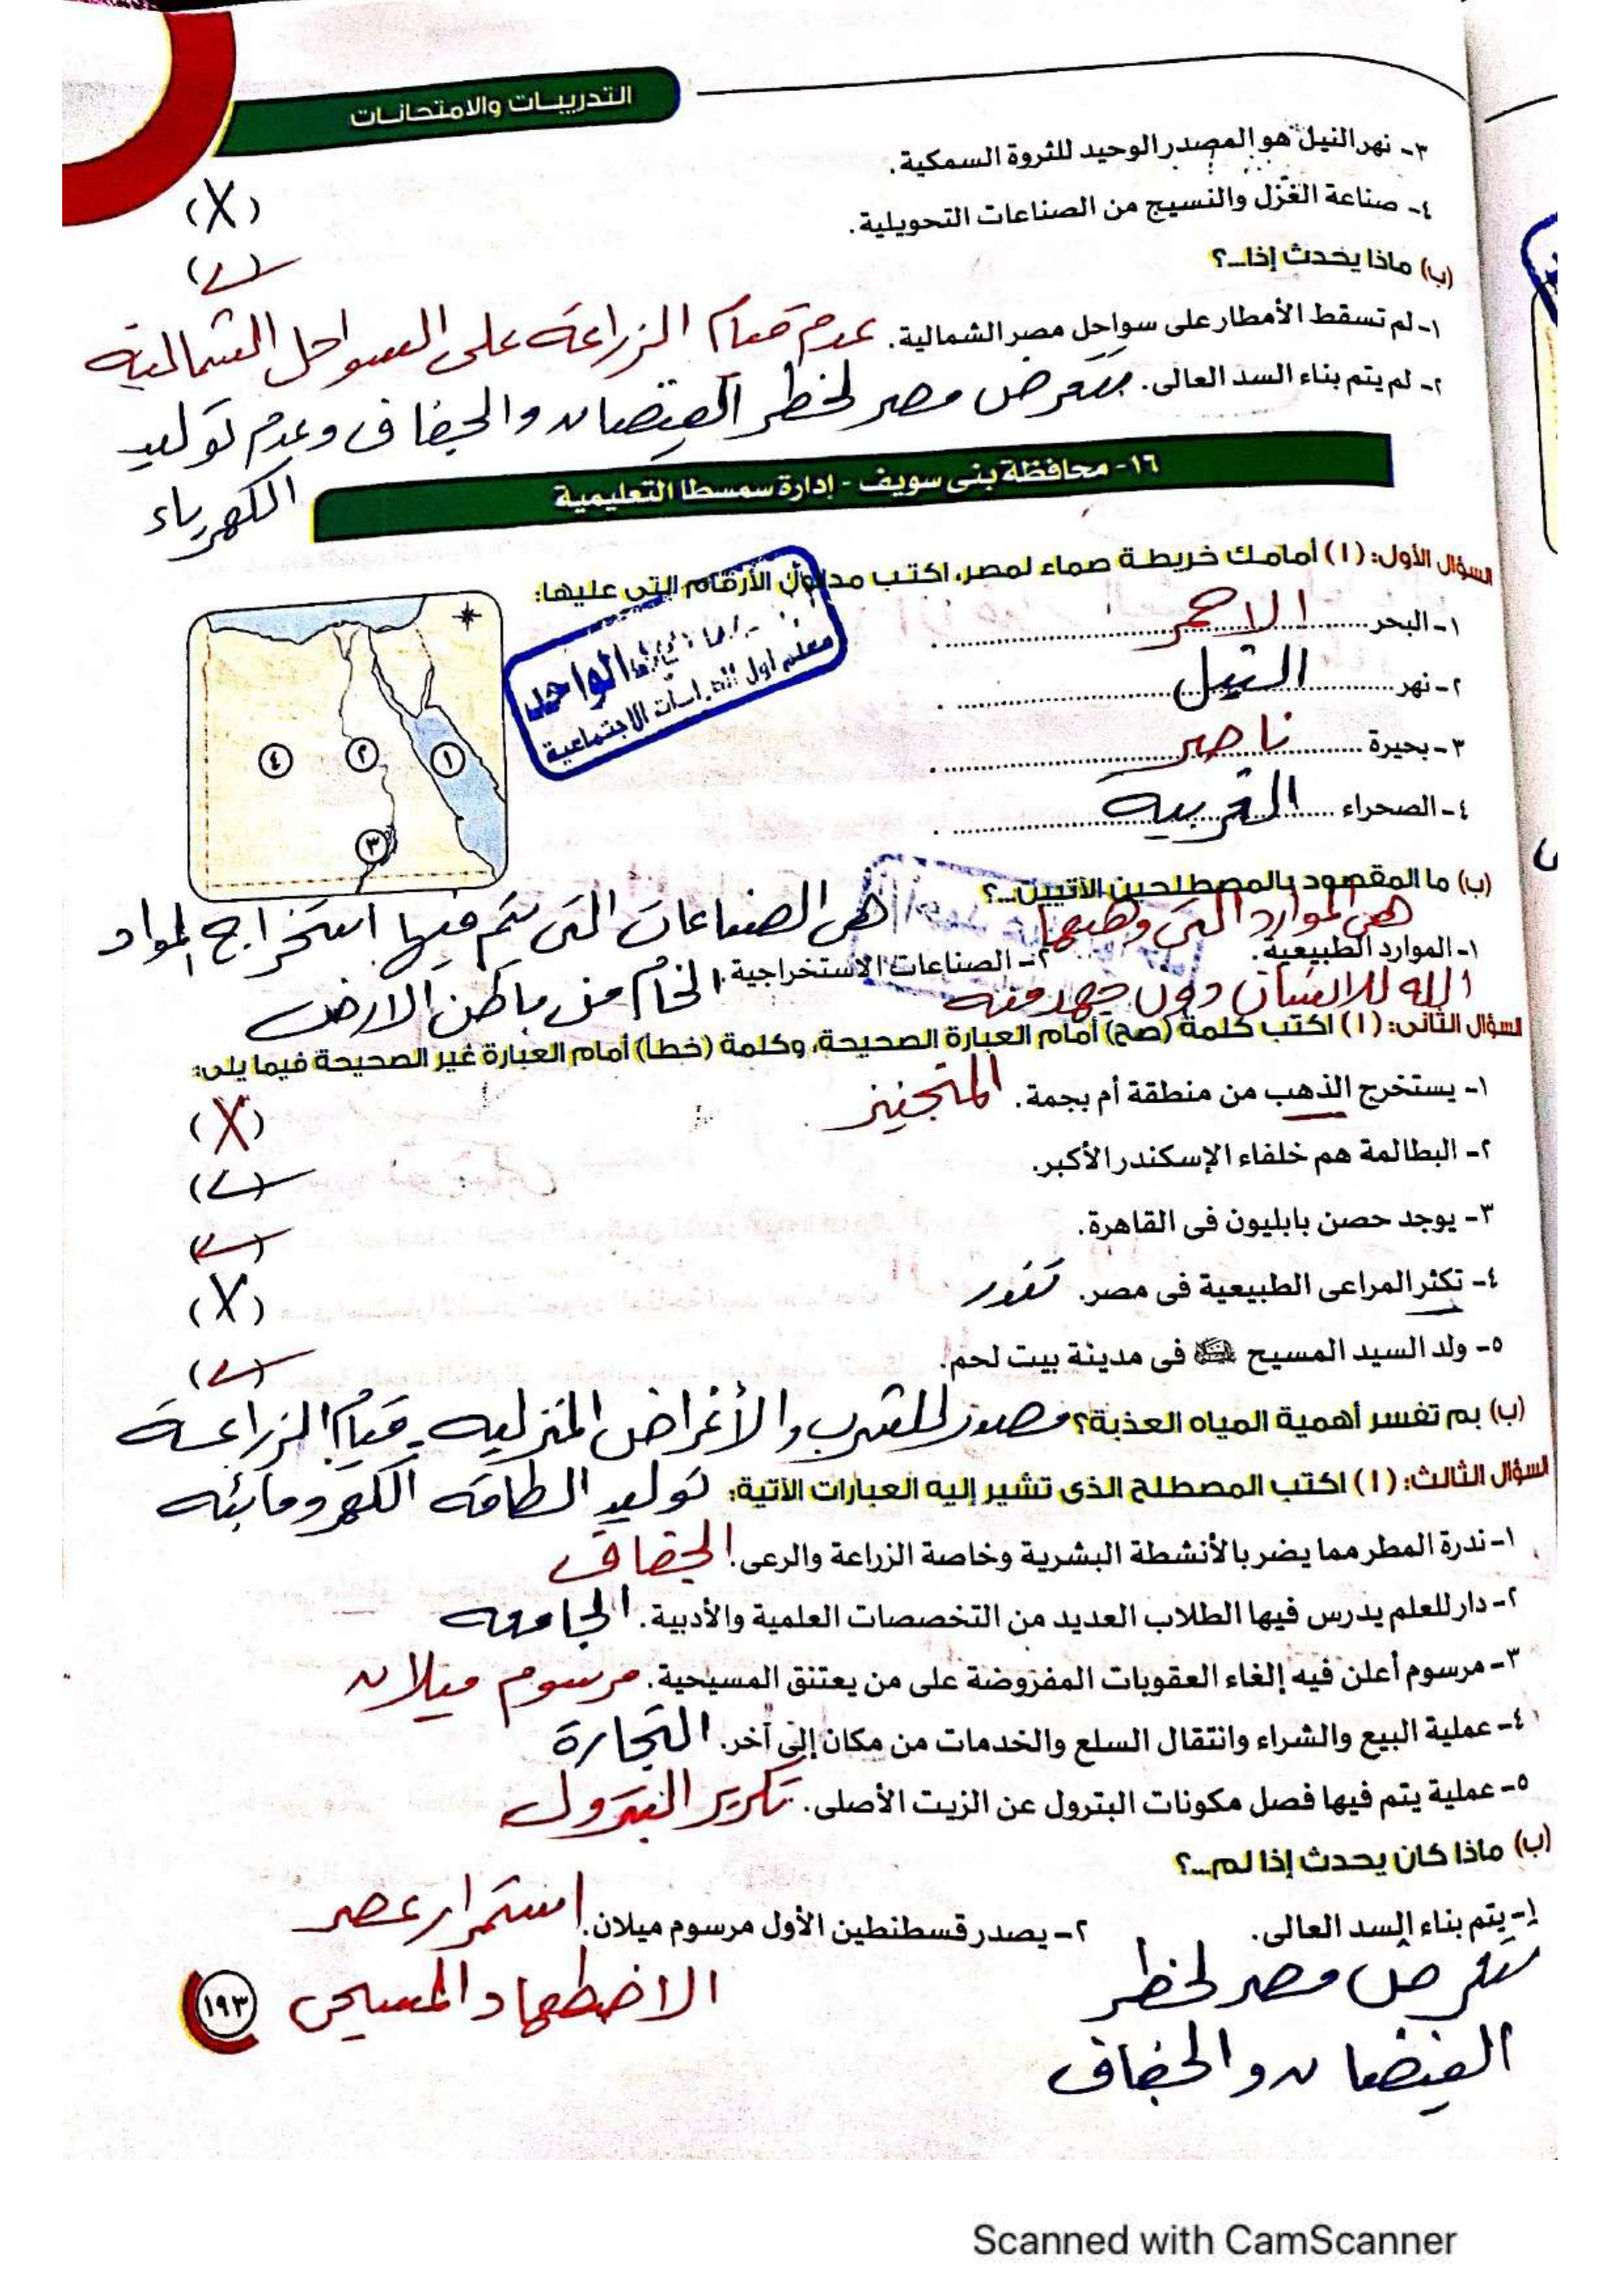 التدريبات والامتحانات
٣- نهر النيل هو المصدر الوحيد للثروة السمكية.
(X)
٤- صناعة الغزل والنسيج من الصناعات التحويلية.
(✓)
(ب) ماذا يحدث إذا...؟
١- لم تسقط الأمطار على سواحل مصر الشمالية. عدم قيام الزراعة على السواحل الشمالية
٢- لم يتم بناء السد العالى. تتعرض مصر لخطر الفيضان والجفاف وعدم توليد
الكهرباء
١٦- محافظة بنى سويف - إدارة سمسطا التعليمية
السؤال الأول: (١) أمامك خريطة صماء لمصر، اكتب مدلول الأرقام التى عليها:
١- البحر ........ الاحمر ........ .
٢- نهر ........ النيل ........ .
٣- بحيرة ........ ناصر ........ .
٤- الصحراء ........ الغربية ........ .
الواحيل
معلم أول الدراسات الاجتماعية
١
٢
٣
٤
(ب) ما المقصود بالمصطلحين الآتيين...؟
١- الموارد الطبيعية. هى الموارد التى وهبها
الله للانسان دون جهد منه
٢- الصناعات الاستخراجية. هى الصناعات التى يتم فيها استخراج المواد
الخام من باطن الارض
السؤال الثانى: (١) اكتب كلمة (صح) أمام العبارة الصحيحة، وكلمة (خطأ) أمام العبارة غير الصحيحة فيما يلى:
١- يستخرج الذهب من منطقة أم بجمة. المنجنيز (X)
٢- البطالمة هم خلفاء الإسكندر الأكبر. (✓)
٣- يوجد حصن بابليون فى القاهرة. (✓)
٤- تكثر المراعى الطبيعية فى مصر. (X)
٥- ولد السيد المسيح فى مدينة بيت لحم. (✓)
(ب) بم تفسر أهمية المياه العذبة؟ مصدر للشرب والأغراض المنزليه - قيام الزراعة
توليد الطاقه الكهرومائيه
السؤال الثالث: (١) اكتب المصطلح الذى تشير إليه العبارات الآتية:
١- ندرة المطر مما يضر بالأنشطة البشرية وخاصة الزراعة والرعى. الجفاف
٢- دار للعلم يدرس فيها الطلاب العديد من التخصصات العلمية والأدبية. الجامعه
٣- مرسوم أعلن فيه إلغاء العقوبات المفروضة على من يعتنق المسيحية. مرسوم ميلان
٤- عملية البيع والشراء وانتقال السلع والخدمات من مكان إلى آخر. التجارة
٥- عملية يتم فيها فصل مكونات البترول عن الزيت الأصلى. تكرير البترول
(ب) ماذا كان يحدث إذا لم...؟
١- يتم بناء السد العالى.
تتعرض مصر لخطر
الفيضان والجفاف
٢- يصدر قسطنطين الأول مرسوم ميلان. استمرار عصر
الاضطهاد المسيحى
١٩٣
Scanned with CamScanner